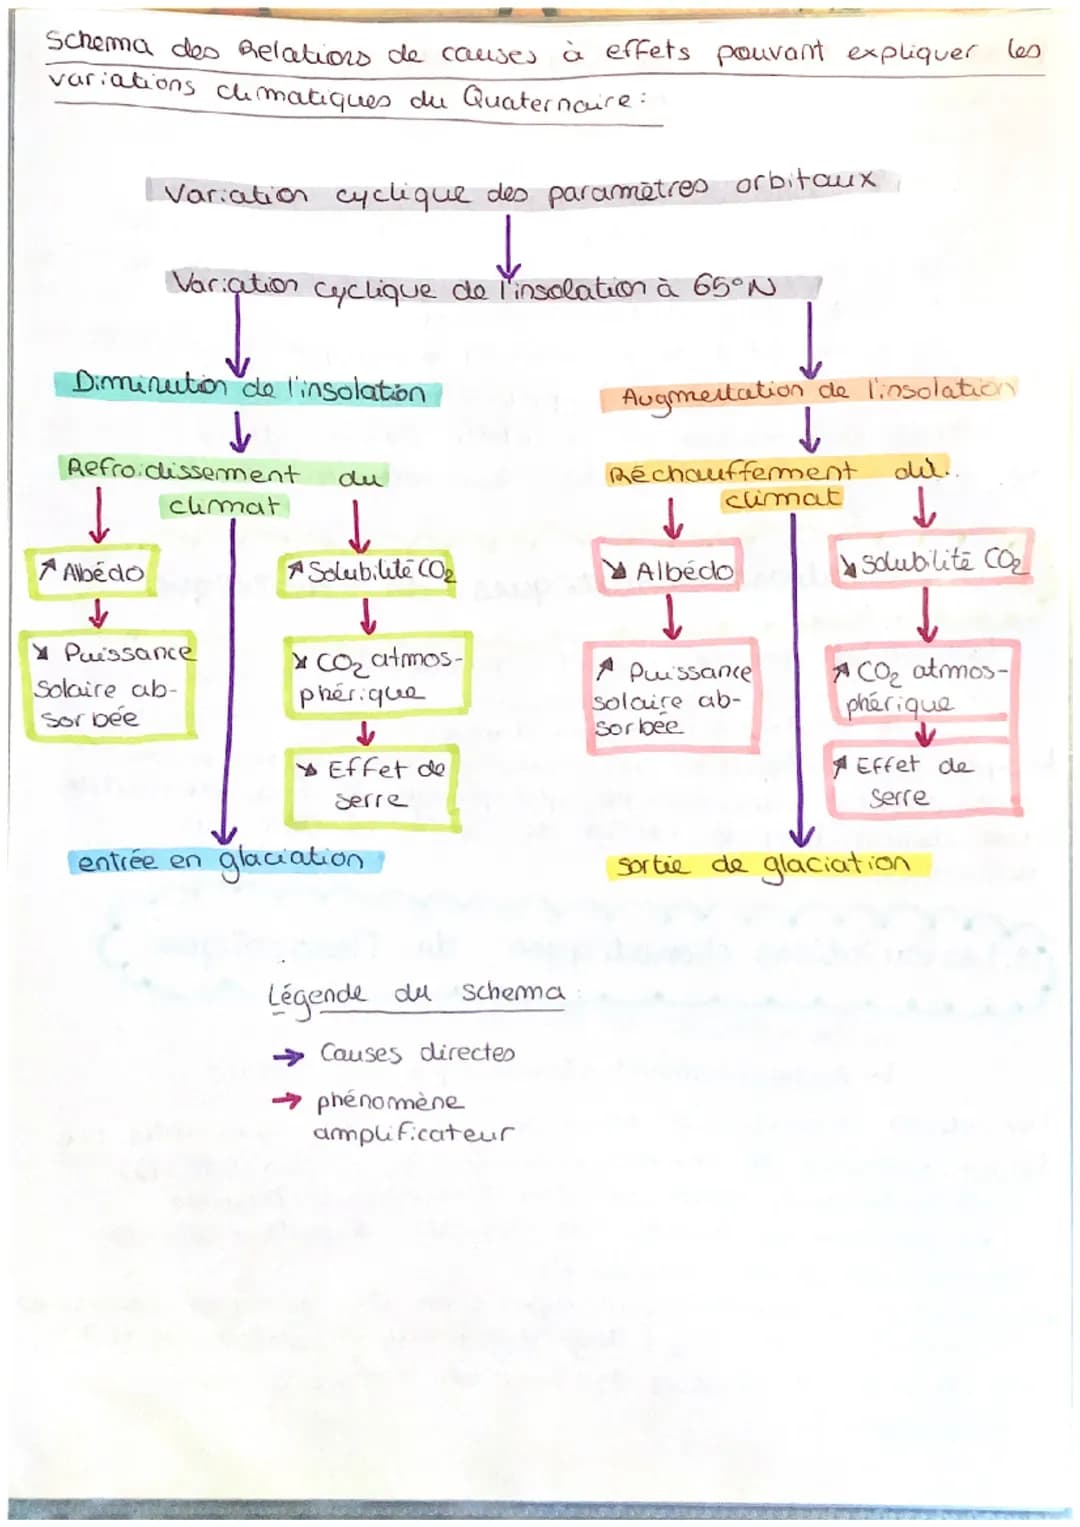 Schema des Relations de causes à effets pouvant expliquer les
variations climatiques du Quaternaire :
Variation cyclique des paramètres orbitaux
Variation cyclique de l'insolation à 65°N
Diminution de l'insolation
Refroidissement du
climat
↗ Albédo
↘ Puissance
Solaire ab-
sorbée
↗ Solubilité CO₂
↘ CO₂ atmos-
phérique
↘ Effet de
serre
entrée en glaciation
Augmentation de l'insolation
Réchauffement du
climat
↘ Albédo
↗ Puissance
solaire ab-
sorbée
↘ Solubilité CO₂
↗ CO₂ atmos-
phérique
↗ Effet de
serre
sortie de glaciation
Légende du schema :
→ Causes directes
→ phénomène
amplificateur